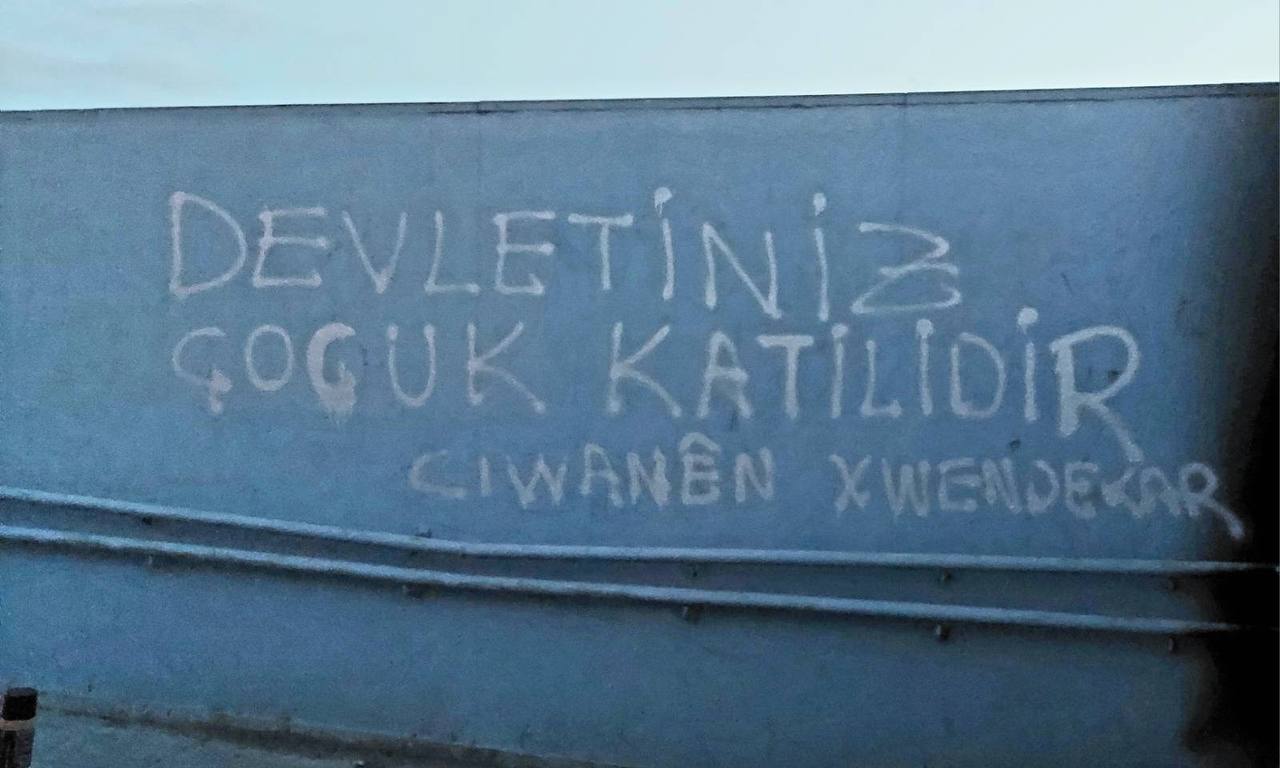 DEVLETİNİZ
ÇOCUK KATİLİDİR
CIWANÊN XWENDEKAR